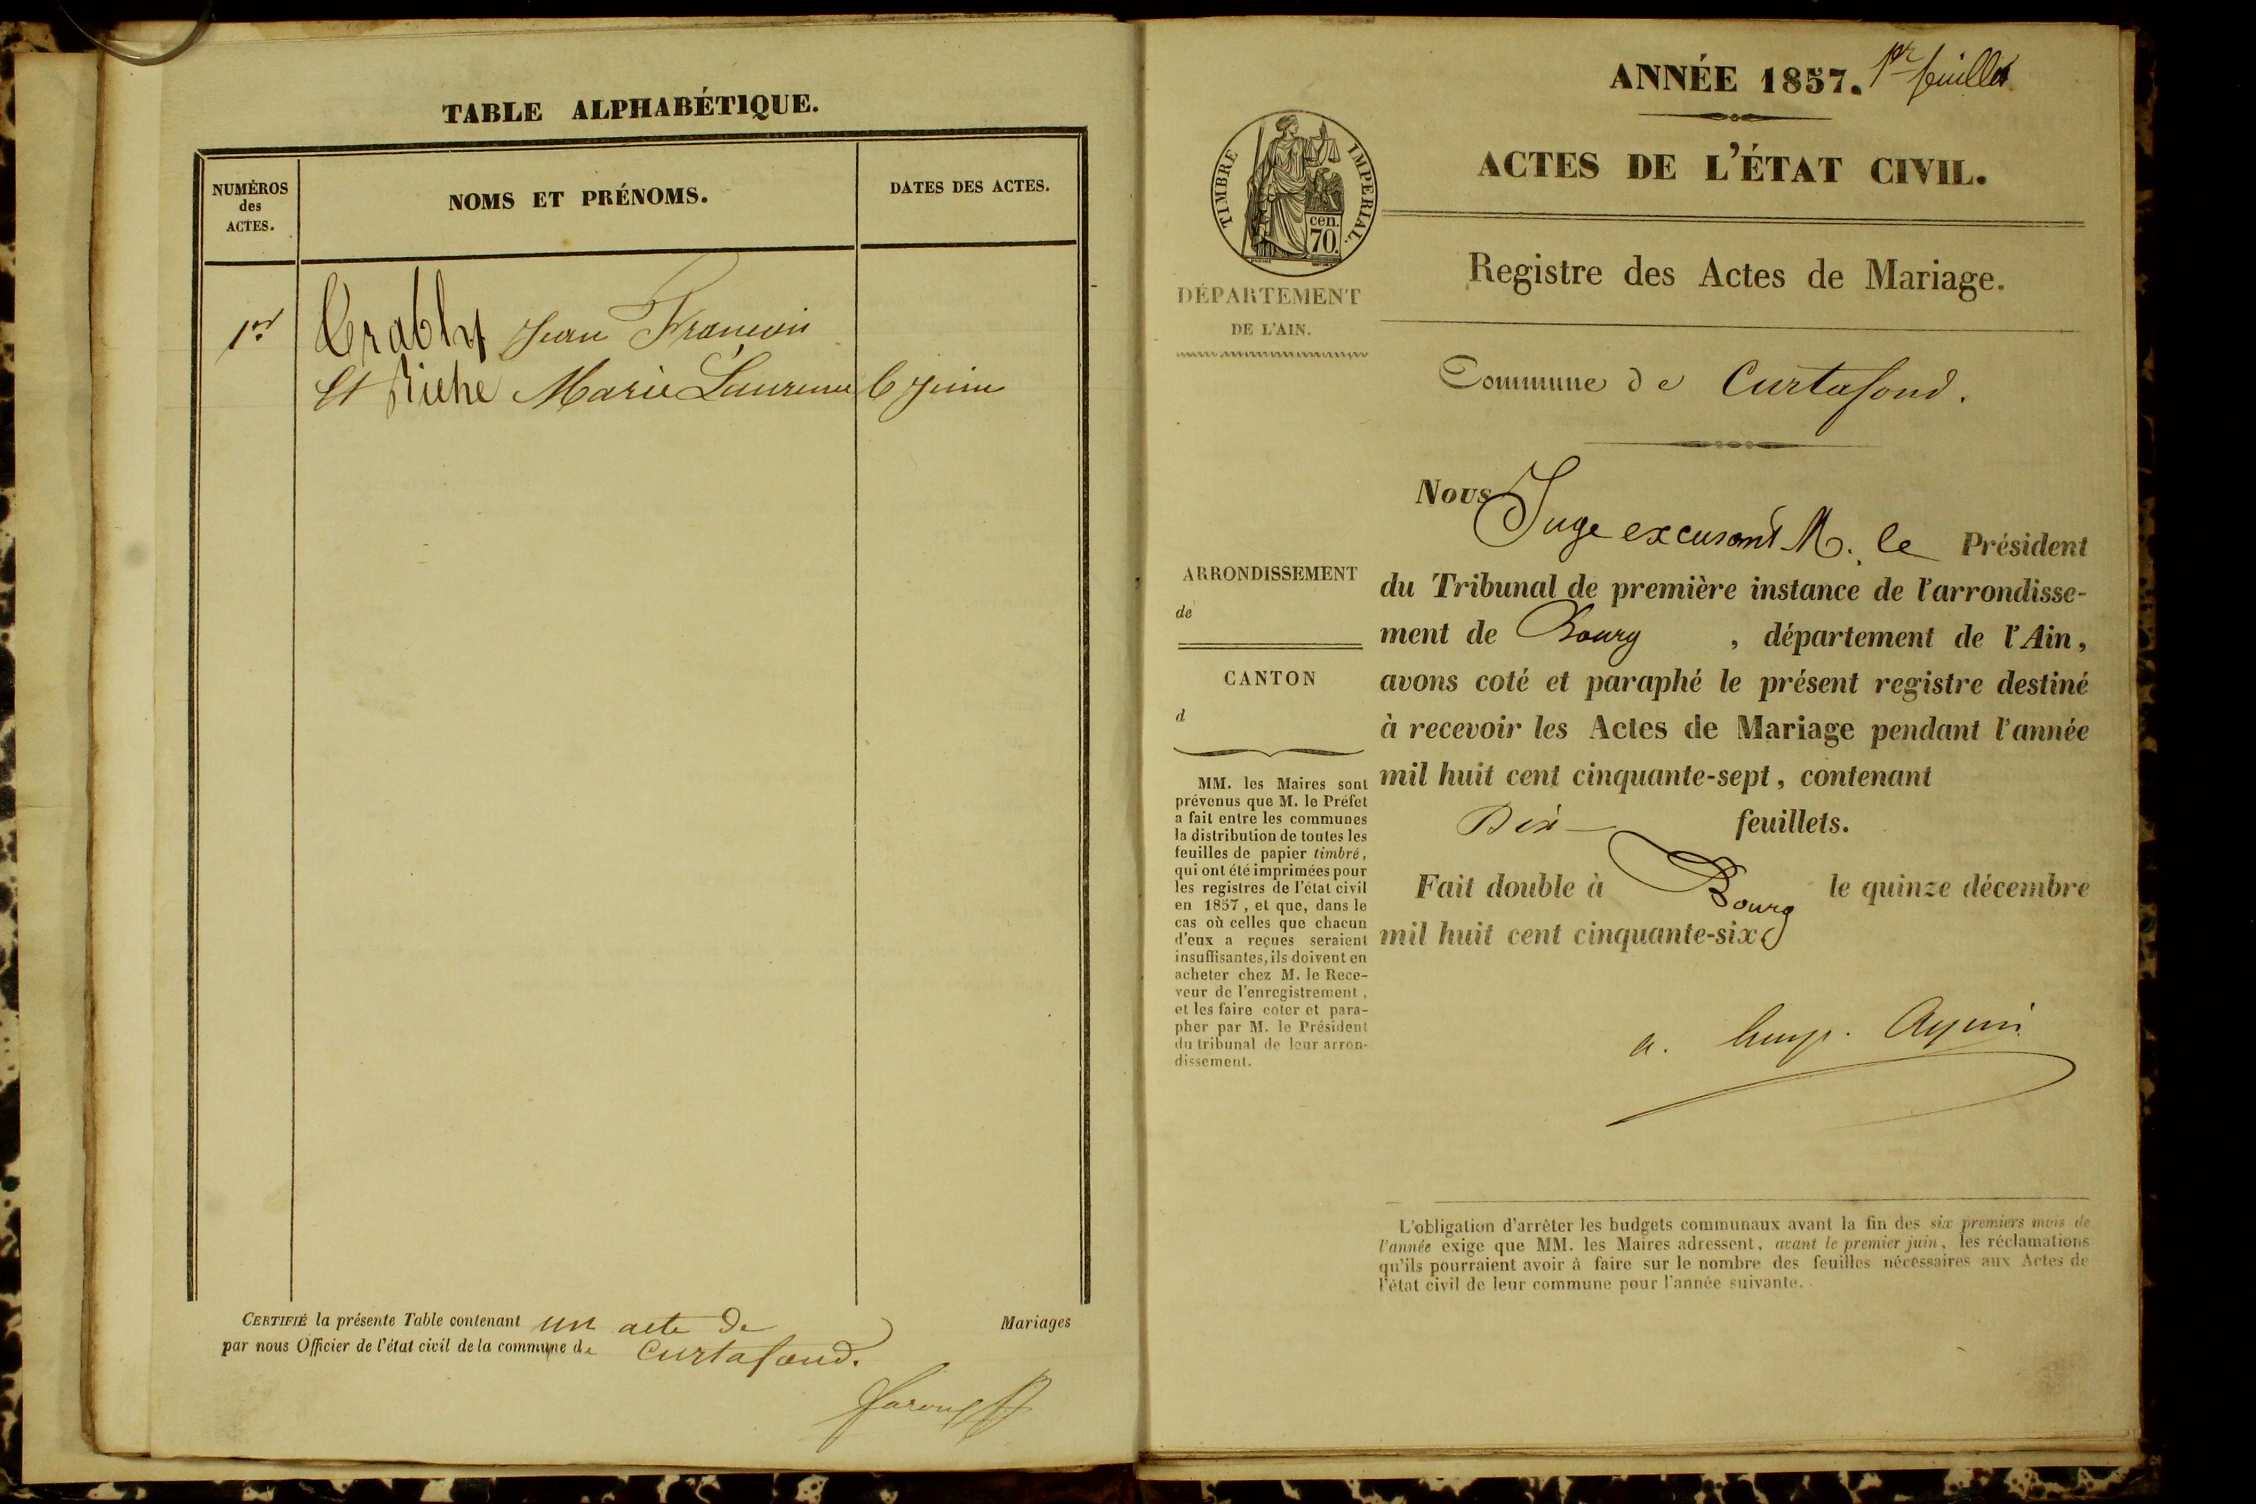 TABLE ALPHABÉTIQUE.
NUMÉROS
des
ACTES.
NOMS ET PRÉNOMS.
DATES DES ACTES.
1er
Jean François
Et Riche Marie Laurence 6 Juin
CERTIFIÉ la présente Table contenant un acte de Mariages
par nous Officier de l'état civil de la commune de Curtafond.
ANNÉE 1857. 1er feuillet
ACTES DE L'ÉTAT CIVIL.
TIMBRE IMPERIAL.
cen.
70.
Registre des Actes de Mariage.
DÉPARTEMENT
DE L'AIN.
Commune de Curtafond.
ARRONDISSEMENT
de
CANTON
d
MM. les Maires sont
prévenus que M. le Préfet
a fait entre les communes
la distribution de toutes les
feuilles de papier timbré,
qui ont été imprimées pour
les registres de l'état civil
en 1857, et que, dans le
cas où celles que chacun
d'eux a reçues seraient
insuffisantes, ils doivent en
acheter chez M. le Rece-
veur de l'enregistrement,
et les faire coter et para-
pher par M. le Président
du tribunal de leur arron-
dissement.
Nous Juge excusant M. le Président
du Tribunal de première instance de l'arrondisse-
ment de Bourg, département de l'Ain,
avons coté et paraphé le présent registre destiné
à recevoir les Actes de Mariage pendant l'année
mil huit cent cinquante-sept, contenant
Dix feuillets.
Fait double à Bourg le quinze décembre
mil huit cent cinquante-six
L'obligation d'arrêter les budgets communaux avant la fin des six premiers mois de
l'année exige que MM. les Maires adressent, avant le premier juin, les réclamations
qu'ils pourraient avoir à faire sur le nombre des feuilles nécessaires aux Actes de
l'état civil de leur commune pour l'année suivante.